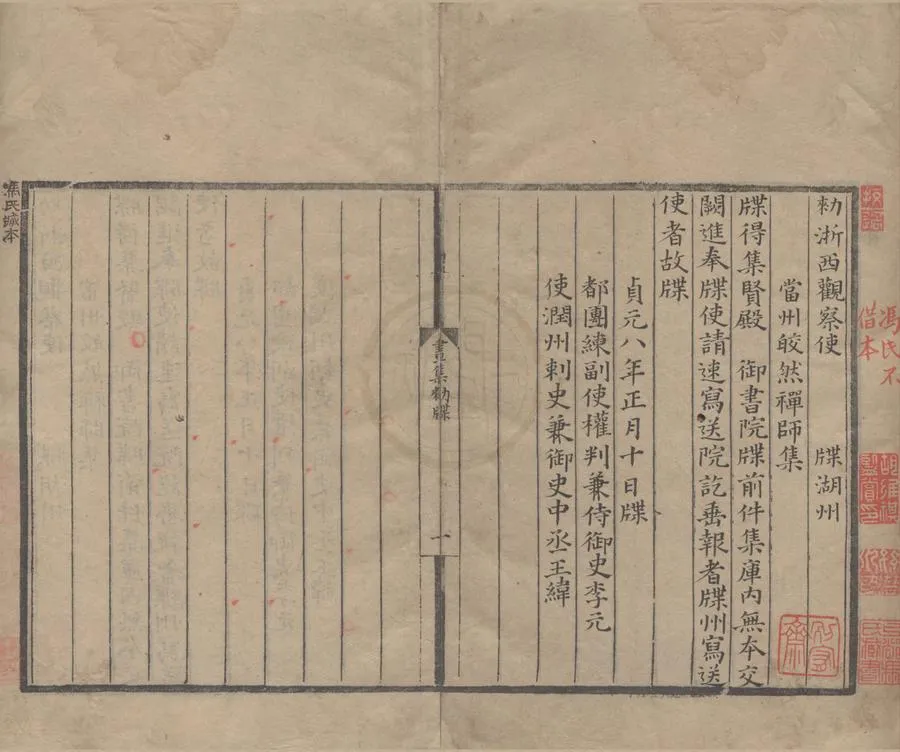 勑浙西觀察使　　牒湖州
當州皎然禪師集
牒得集賢殿　御書院牒前件集庫内無本交
闕進奉牒使請速寫送院訖垂報者牒州寫送
使者故牒
貞元八年正月十日牒
都團練副使權判兼侍御史李元
使潤州刺史兼御史中丞王緯
畫集勑牒
一
馮氏
本
馮氏不
借本